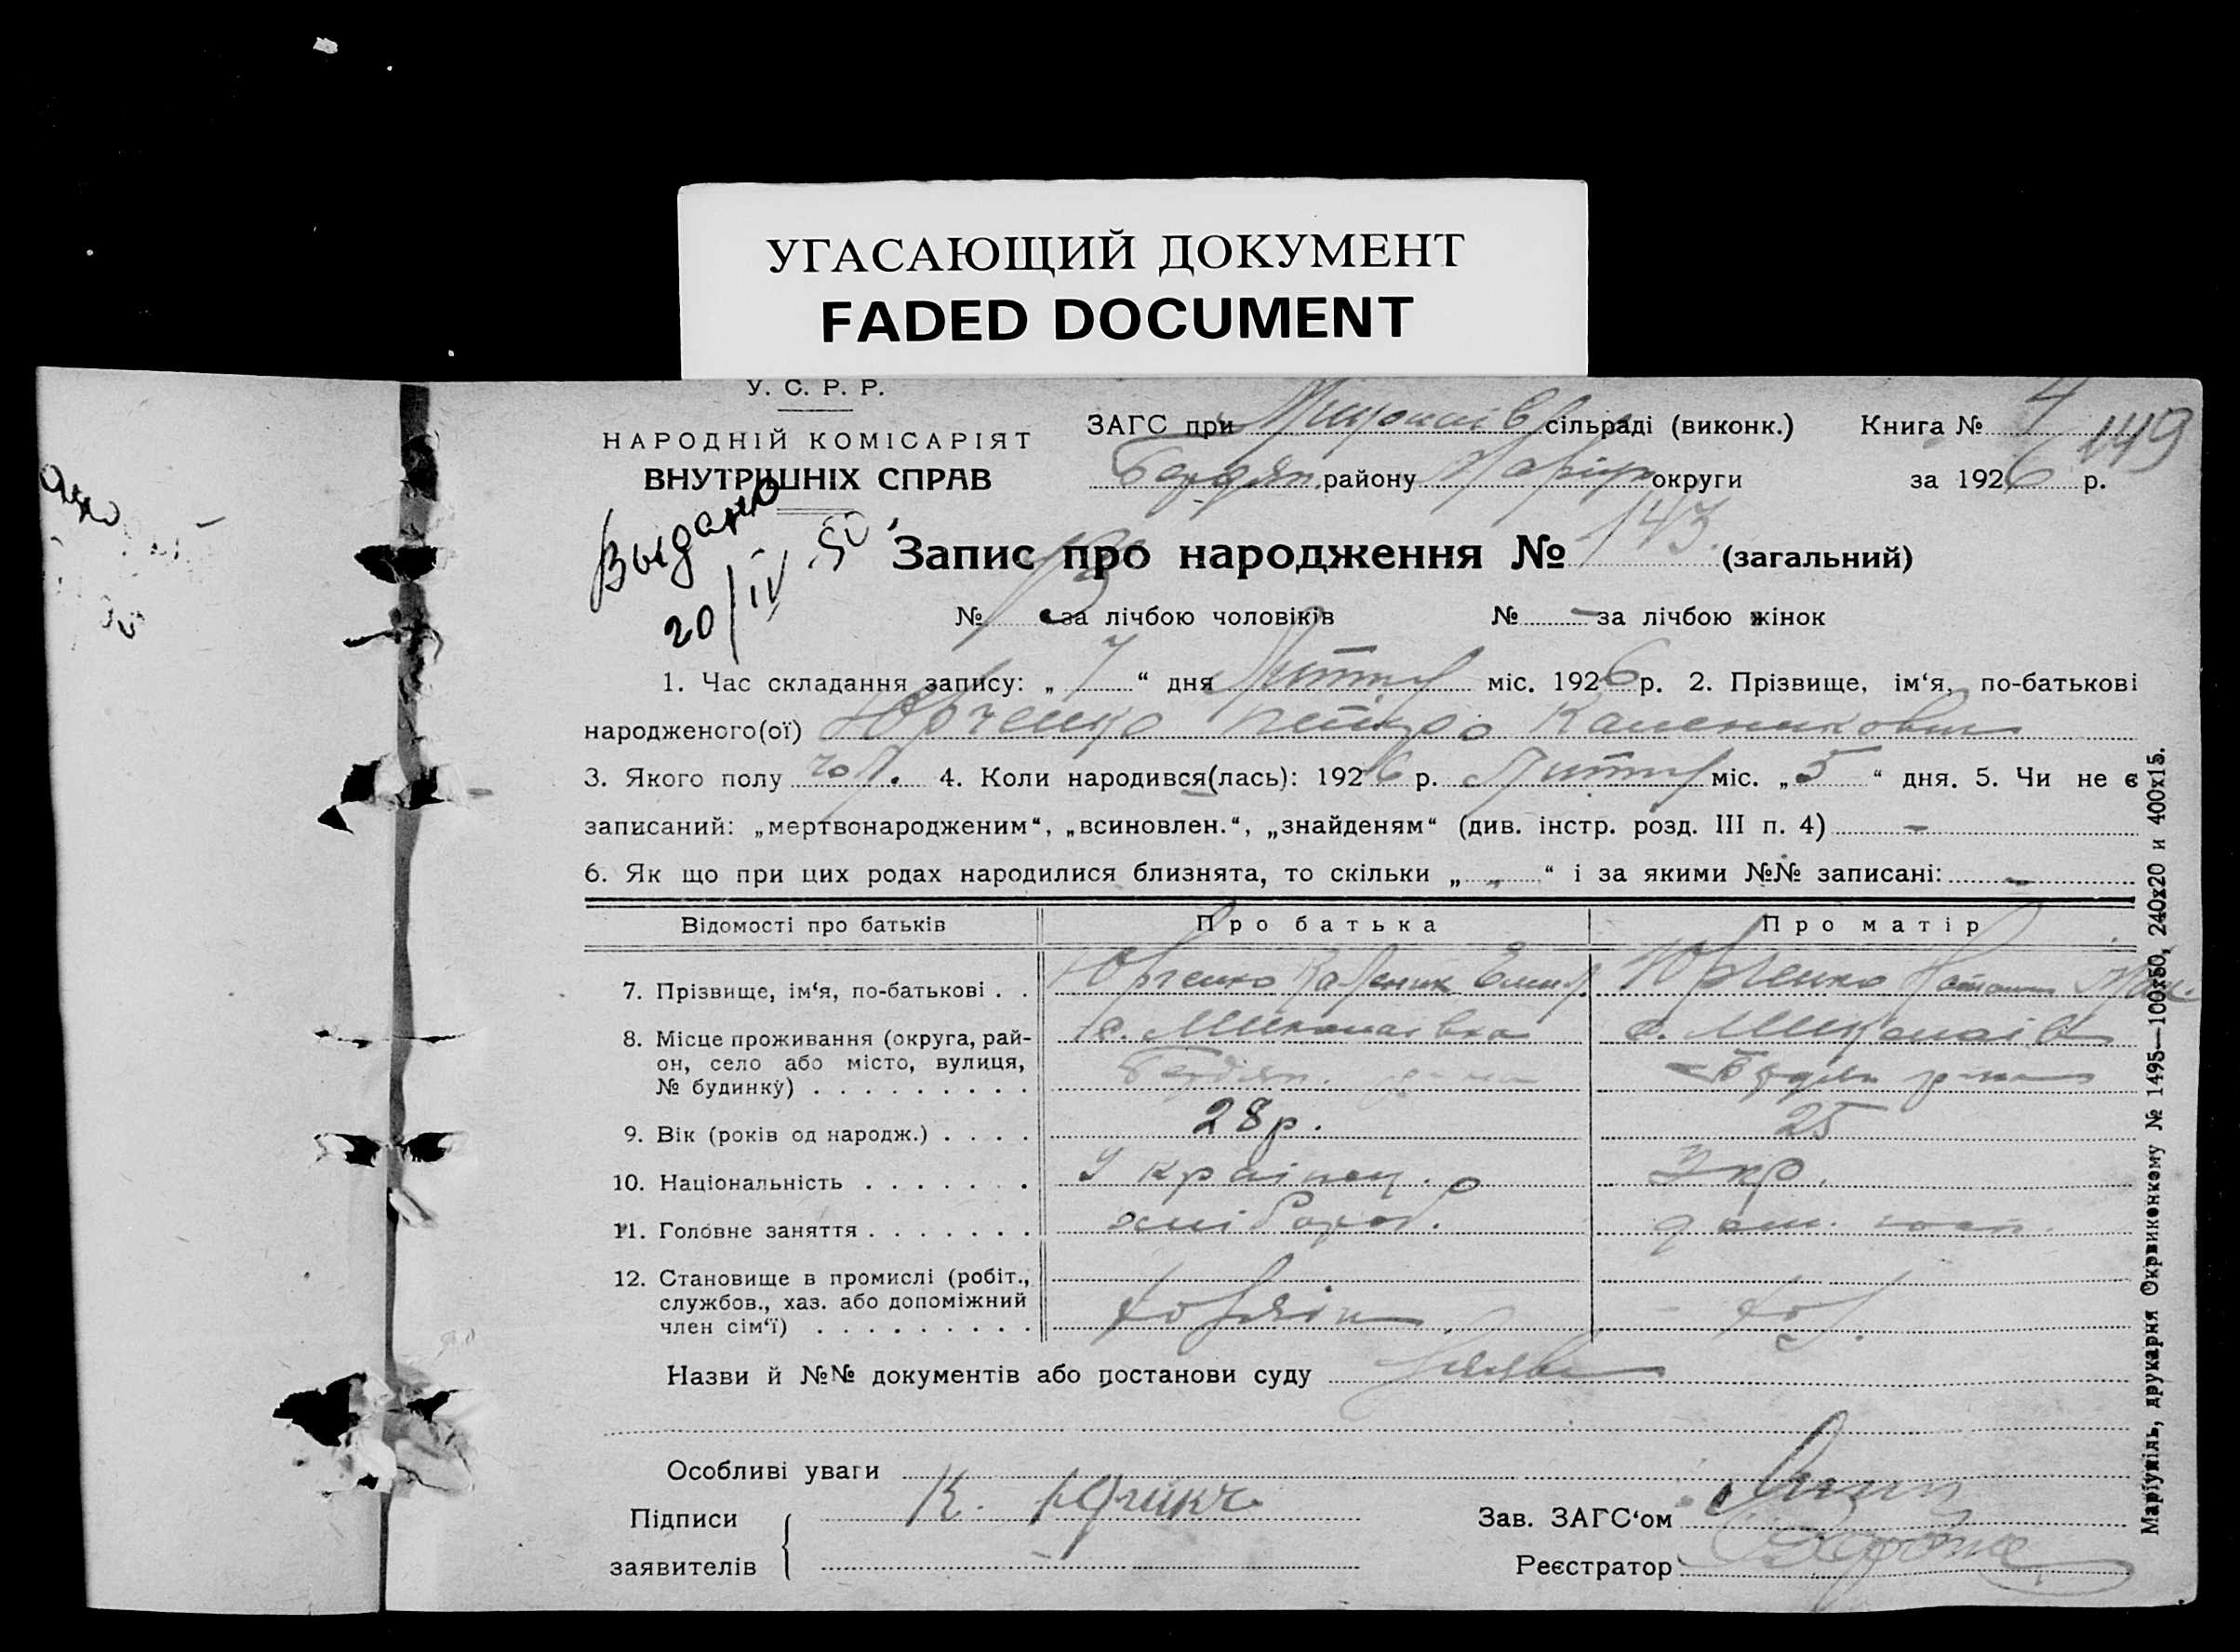 УГАСАЮЩИЙ ДОКУМЕНТ
FADED DOCUMENT
У. С. Р. Р.
НАРОДНІЙ КОМІСАРІЯТ
ВНУТРІШНІХ СПРАВ
ЗАГС при Миколаїв сільраді (виконк.) Книга № 4
149
Бердян. району Маріуп округи за 1926 р.
Выдано
20/IV-50
Запис про народження № 143. (загальний)
№ за лічбою чоловіків № — за лічбою жінок
1. Час складання запису: „ 7 “ дня Лютого міс. 1926 р. 2. Прізвище, ім‘я, по-батькові
народженого(ої) Юрченко Петро Каленикович
3. Якого полу чол. 4. Коли народився(лась): 1926 р. Лютого міс. „ 5 “ дня. 5. Чи не є
записаний: „мертвонародженим“, „всиновлен.“, „знайденям“ (див. інстр. розд. III п. 4) —
6. Як що при цих родах народилися близнята, то скільки „ „ “ і за якими №№ записані: —
Відомості про батьків Про батька Про матір
7. Прізвище, ім‘я, по-батькові . . Юрченко Каленик Юрченко
8. Місце проживання (округа, рай-
он, село або місто, вулиця,
№ будинку) . . . . . . . . .
с. Миколаївка с. Миколаїв
Бердян. Бердян р-на
9. Вік (років од народж.) . . . . 28 р. 25
10. Національність . . . . . . . Українец. Укр.
11. Головне заняття . . . . . . . хлібороб. дом. госп.
12. Становище в промислі (робіт.,
службов., хаз. або допоміжний
член сім‘ї) . . . . . . . . .
Назви й №№ документів або постанови суду
Особливі уваги
Підписи
заявителів
К.
Зав. ЗАГС‘ом
Реєстратор
Маріупіль, друкарня Окрвиконкому № 1495—100х50, 240х20 и 400х15.